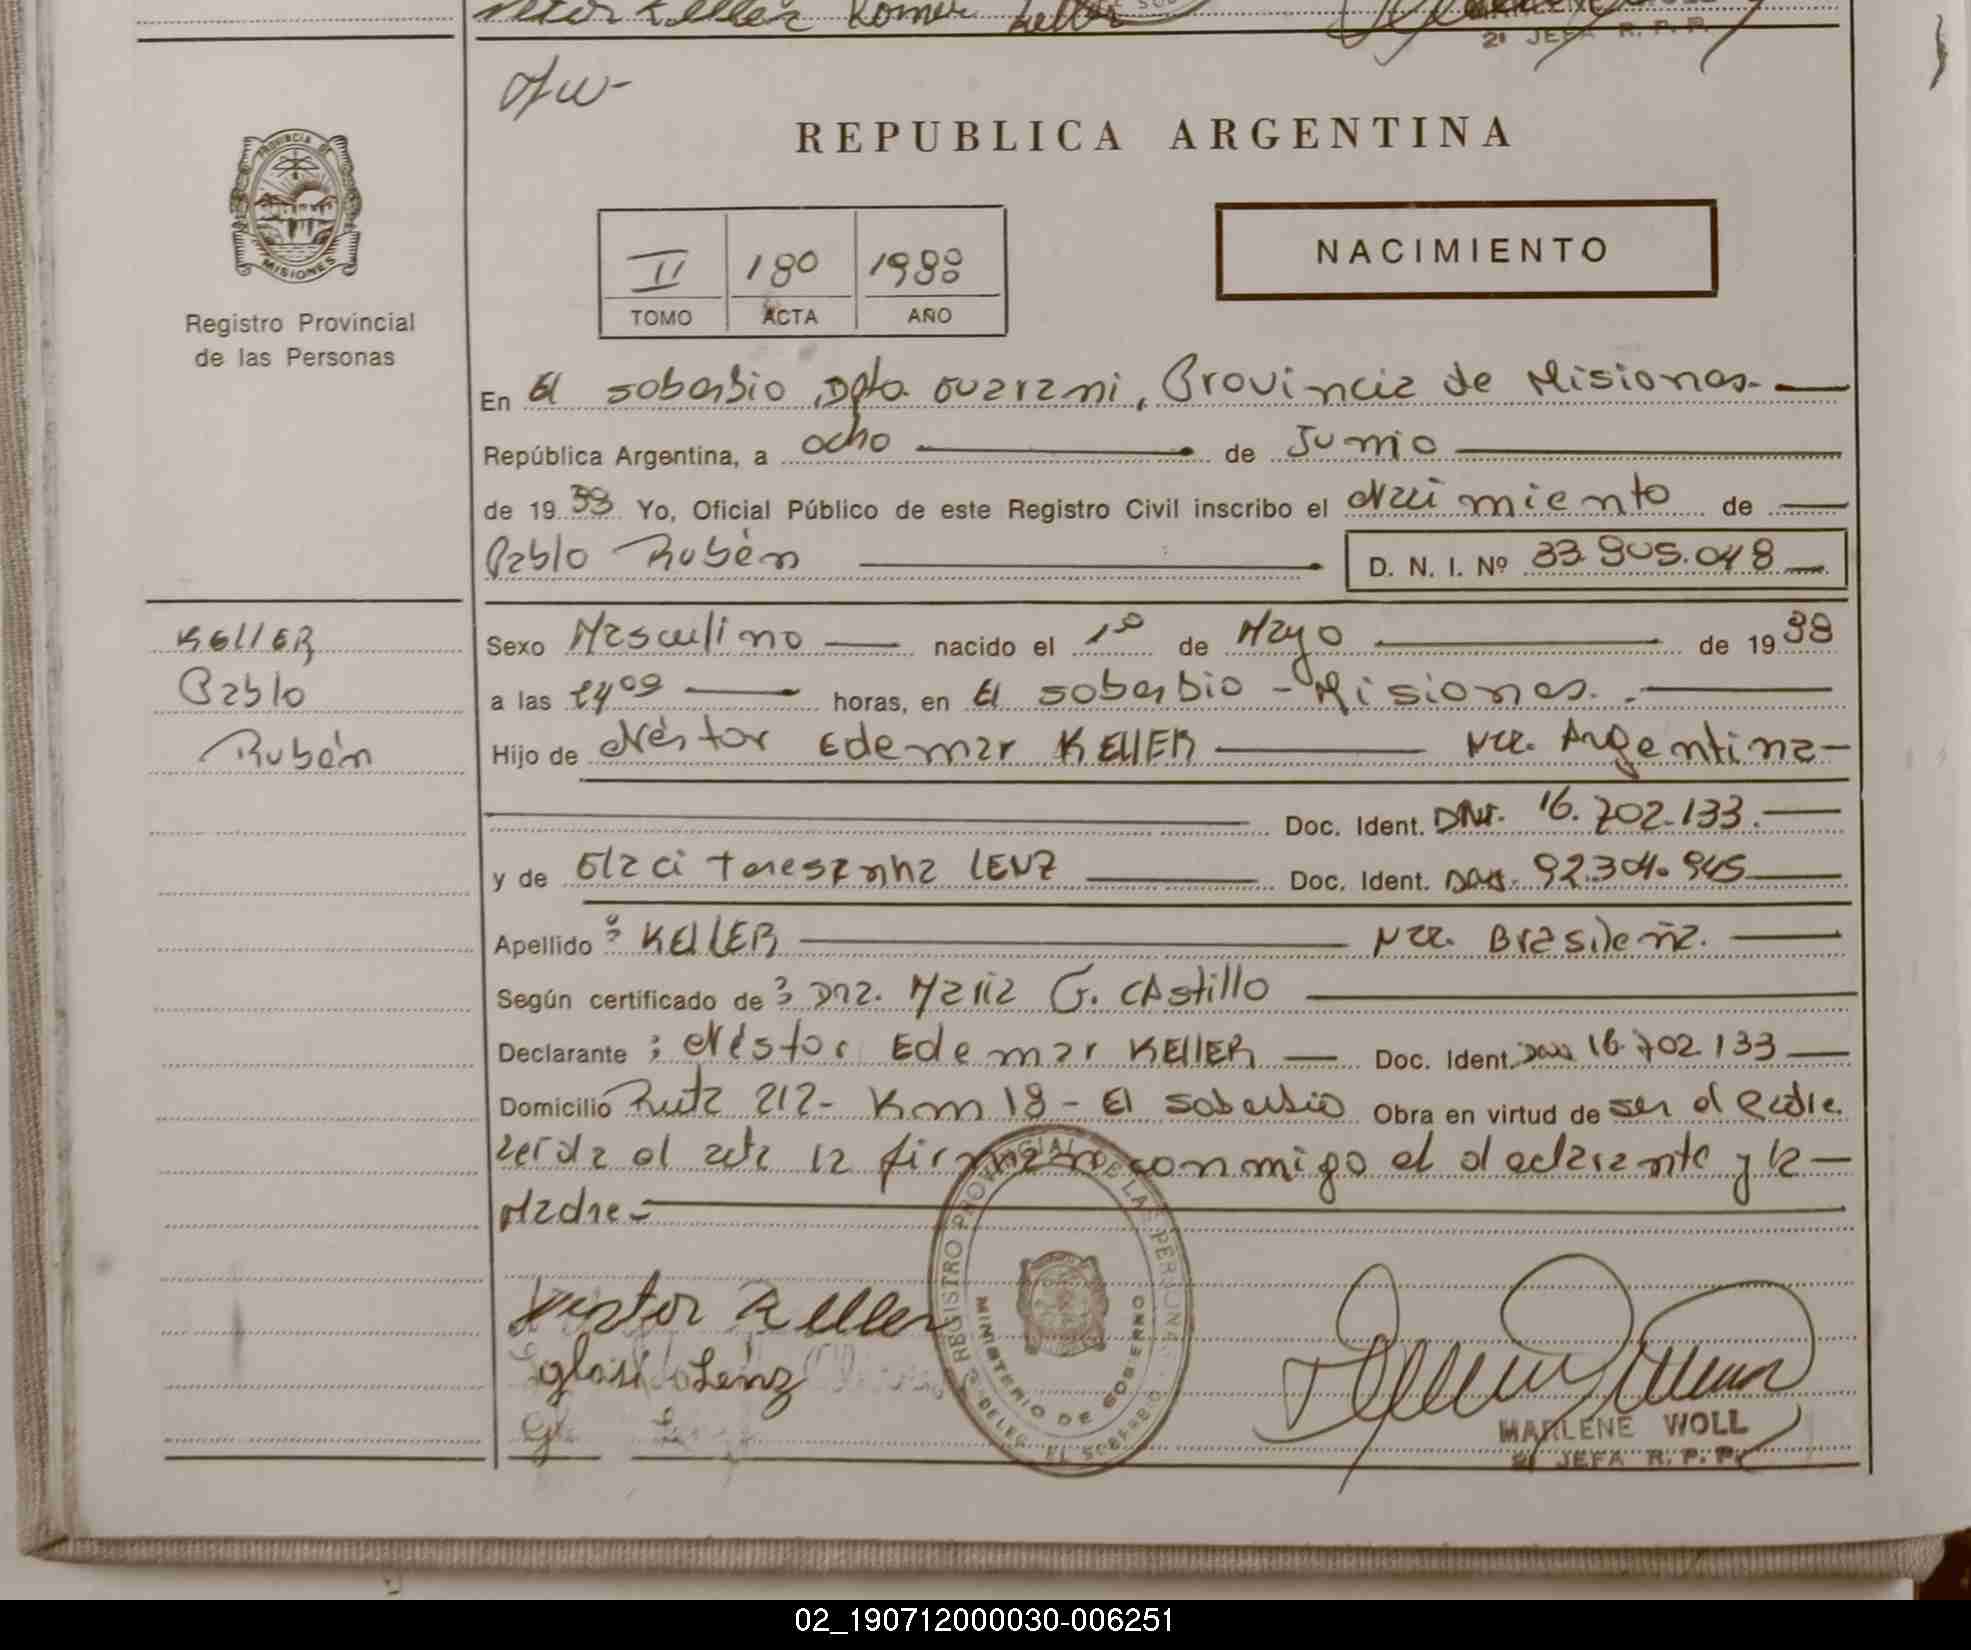 Nestor Keller Komer Keller
2ª JEFA R. P. P.
REPUBLICA ARGENTINA
PROVINCIA DE
MISIONES
Registro Provincial
de las Personas
II 180 1988
TOMO ACTA AÑO
NACIMIENTO
En El soberbio, Dpto. Guarani, Provincia de Misiones.
República Argentina, a ocho de Junio
de 19 88 Yo, Oficial Público de este Registro Civil inscribo el Nacimiento de
Pablo Rubén D. N. I. Nº 33.905.048
KELLER
Pablo
Rubén
Sexo Masculino nacido el 1º de Mayo de 19 88
a las 14 09 horas, en El soberbio - Misiones.
Hijo de Néstor Edemar KELLER Nac. Argentina
Doc. Ident. DNI. 16.702.133.
y de Glaci Teresanha LENZ Doc. Ident. DNI. 92.304.945
Apellido : KELLER Nac. Brasileña.
Según certificado de : Dra. Maria G. CAstillo
Declarante : Néstor Edemar KELLER Doc. Ident. DNI 16.702.133
Domicilio Ruta 212- Km 18 - El soberbio Obra en virtud de ser el Padre.
Leida el acta la firman conmigo el declarante y la
Madre.
Nestor Keller
Glasi Lenz
REGISTRO PROVINCIAL DE LAS PERSONAS
MINISTERIO DE GOBIERNO
DELEG. EL SOBERBIO
MARLENE WOLL
2ª JEFA R. P. P.
02_190712000030-006251